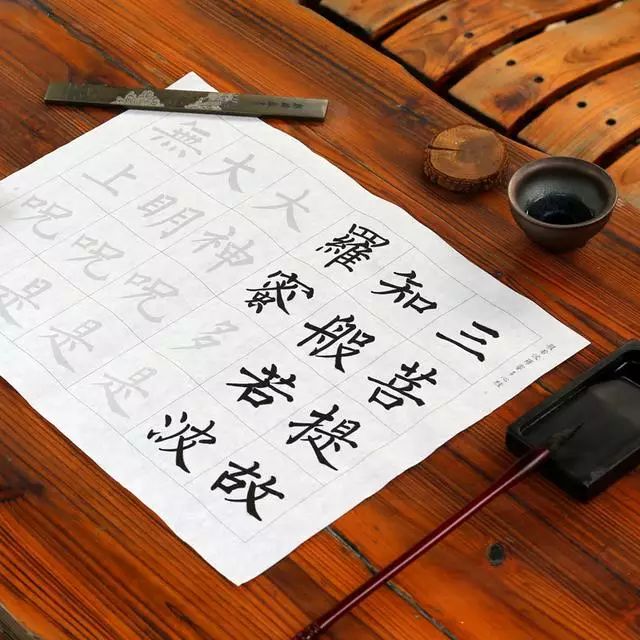 三菩提故
知般若波
羅蜜多是
大神呪是
大明呪是
無上呪